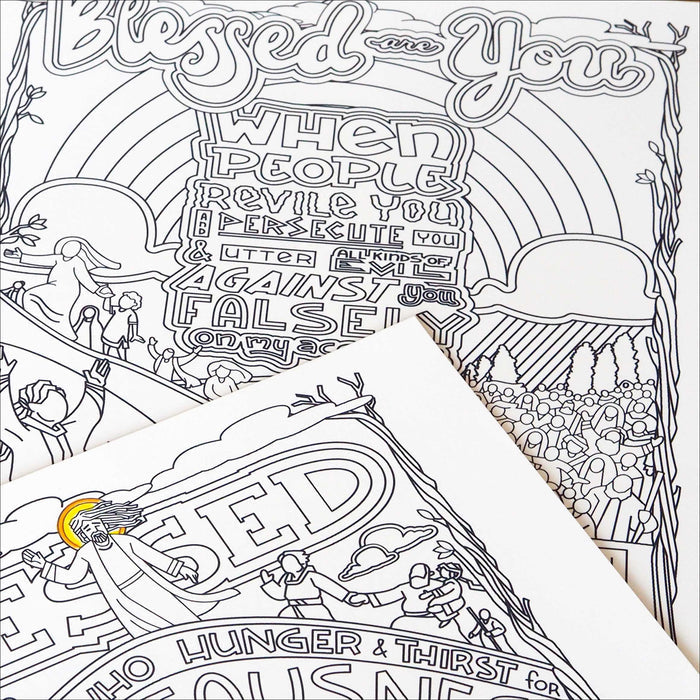 Blessed are You
WHEN
PEOPLE
REVILE YOU
AND PERSECUTE YOU
& UTTER ALL KINDS OF EVIL
AGAINST you
FALSELY
on my ac
ESSED
WHO HUNGER & THIRST for
EOUSNES